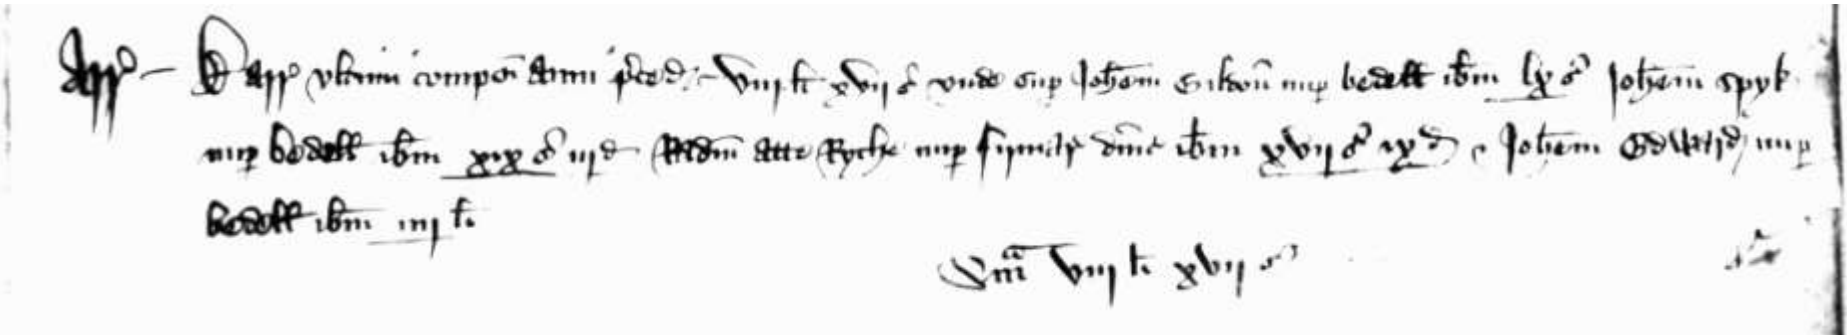 Arr' – De arr' ultimi compoti Anni p'ced' – viij li xvij s' unde sup' Joh'em Gibon' nup' bedell' ib'm lx s' Joh'em Spyk
nup' bedell' ib'm xix s' iij d' Ad'm atte Ryche nup' firmar' d'nic' ib'm xvij s' ix d' & Joh'em Edward' nup'
bedell' ib'm iiij li
S'ma viij li xvij s'